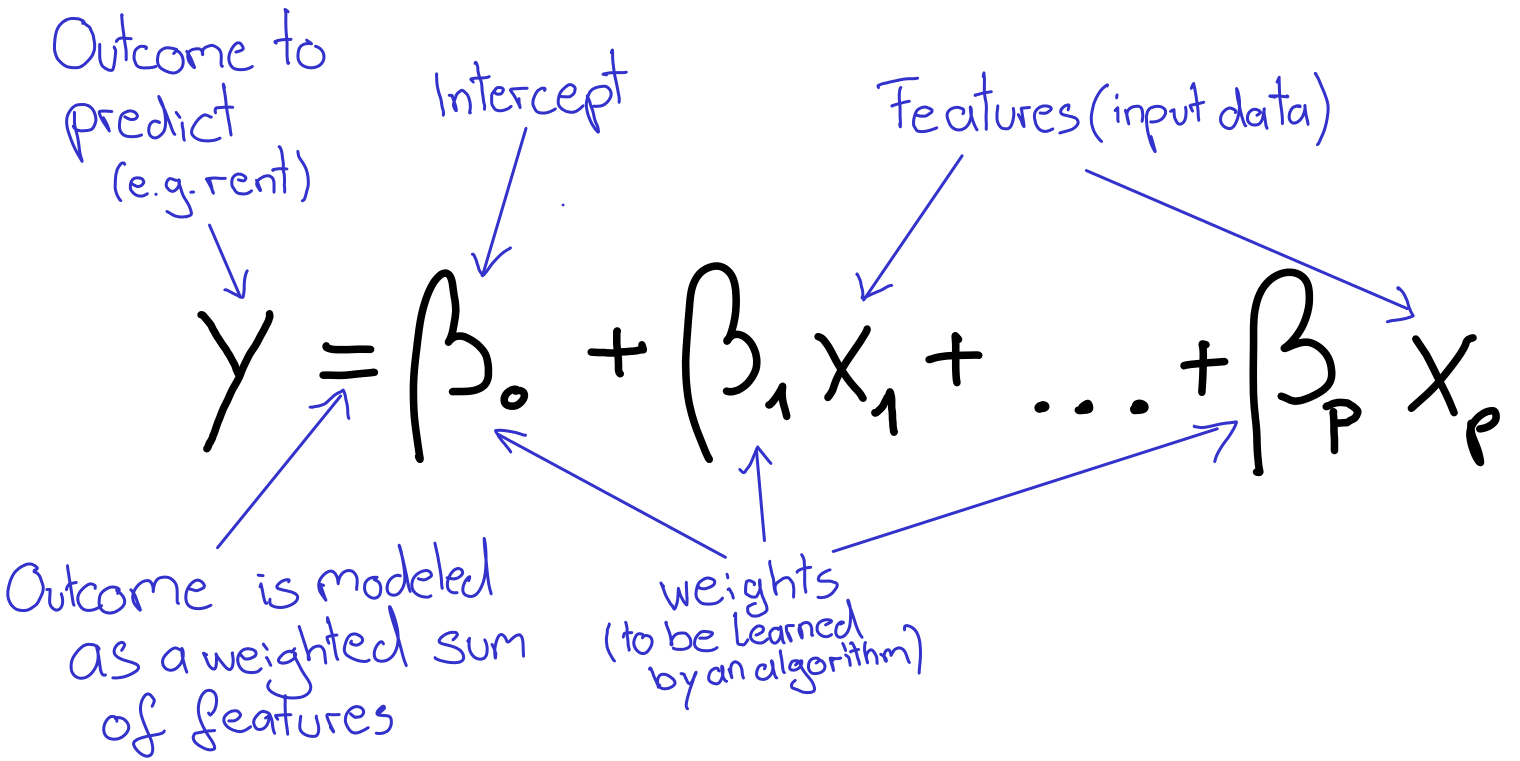 Outcome to
predict
(e.g. rent)
Intercept
Features (input data)
y = β₀ + β₁ x₁ + ... + βₚ xₚ
Outcome is modeled
as a weighted sum
of features
weights
(to be learned
by an algorithm)